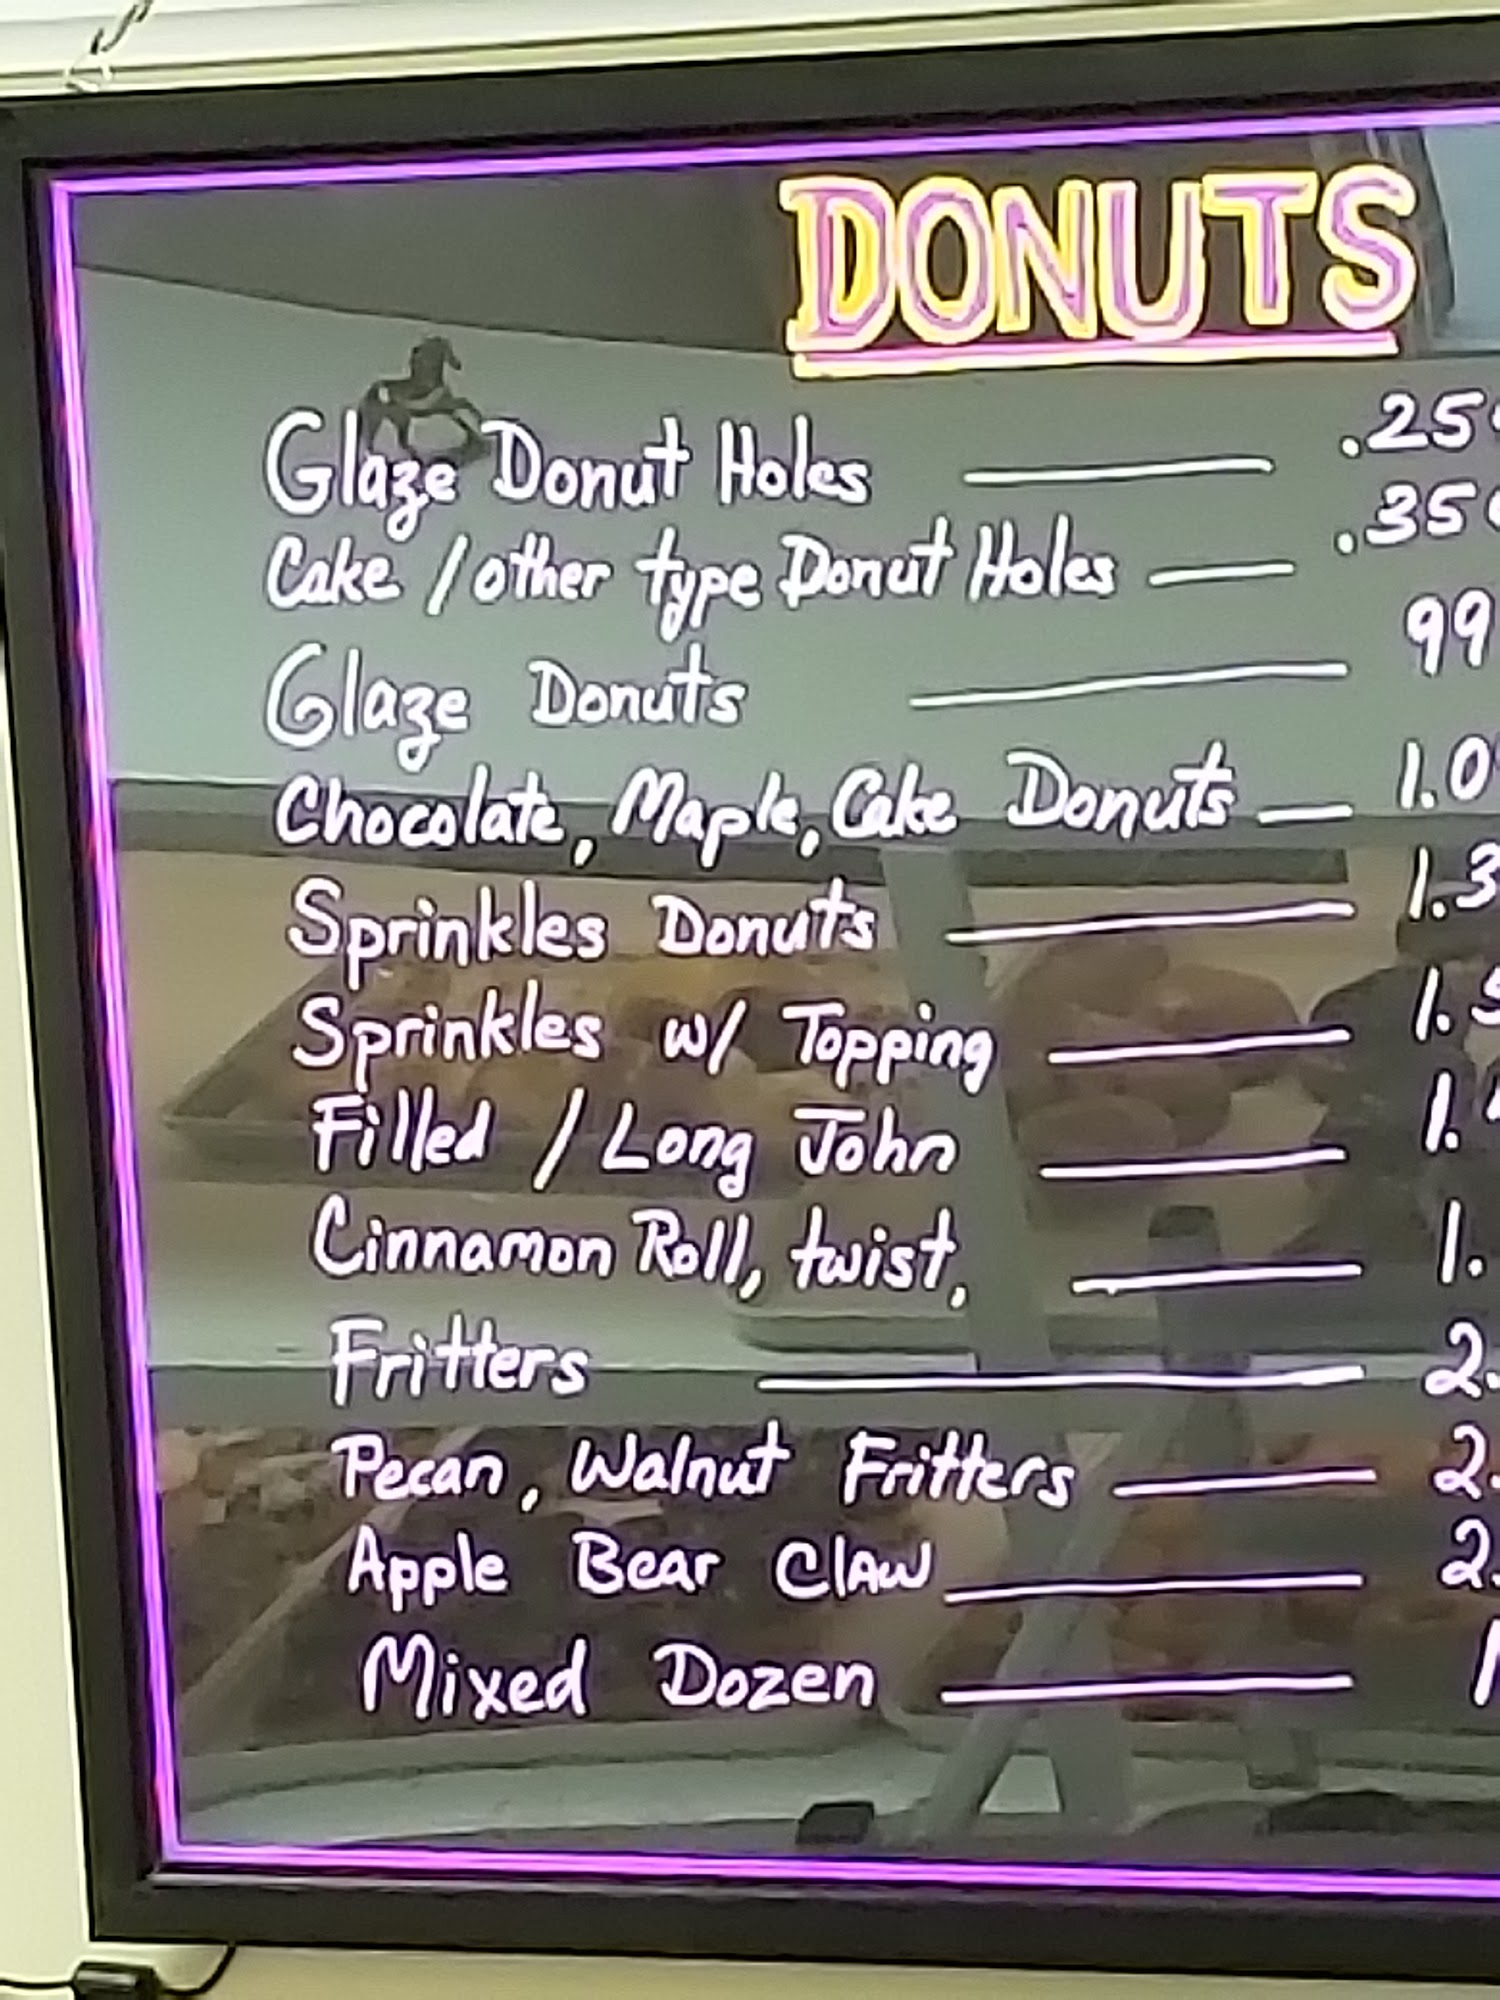 DONUTS
Glaze Donut Holes .25¢
Cake / other type Donut Holes .35¢
Glaze Donuts 99
Chocolate, Maple, Cake Donuts 1.0
Sprinkles Donuts 1.3
Sprinkles w/ Topping 1.5
Filled / Long John 1.
Cinnamon Roll, twist, 1.
Fritters 2.
Pecan, Walnut Fritters 2.
Apple Bear Claw 2.
Mixed Dozen